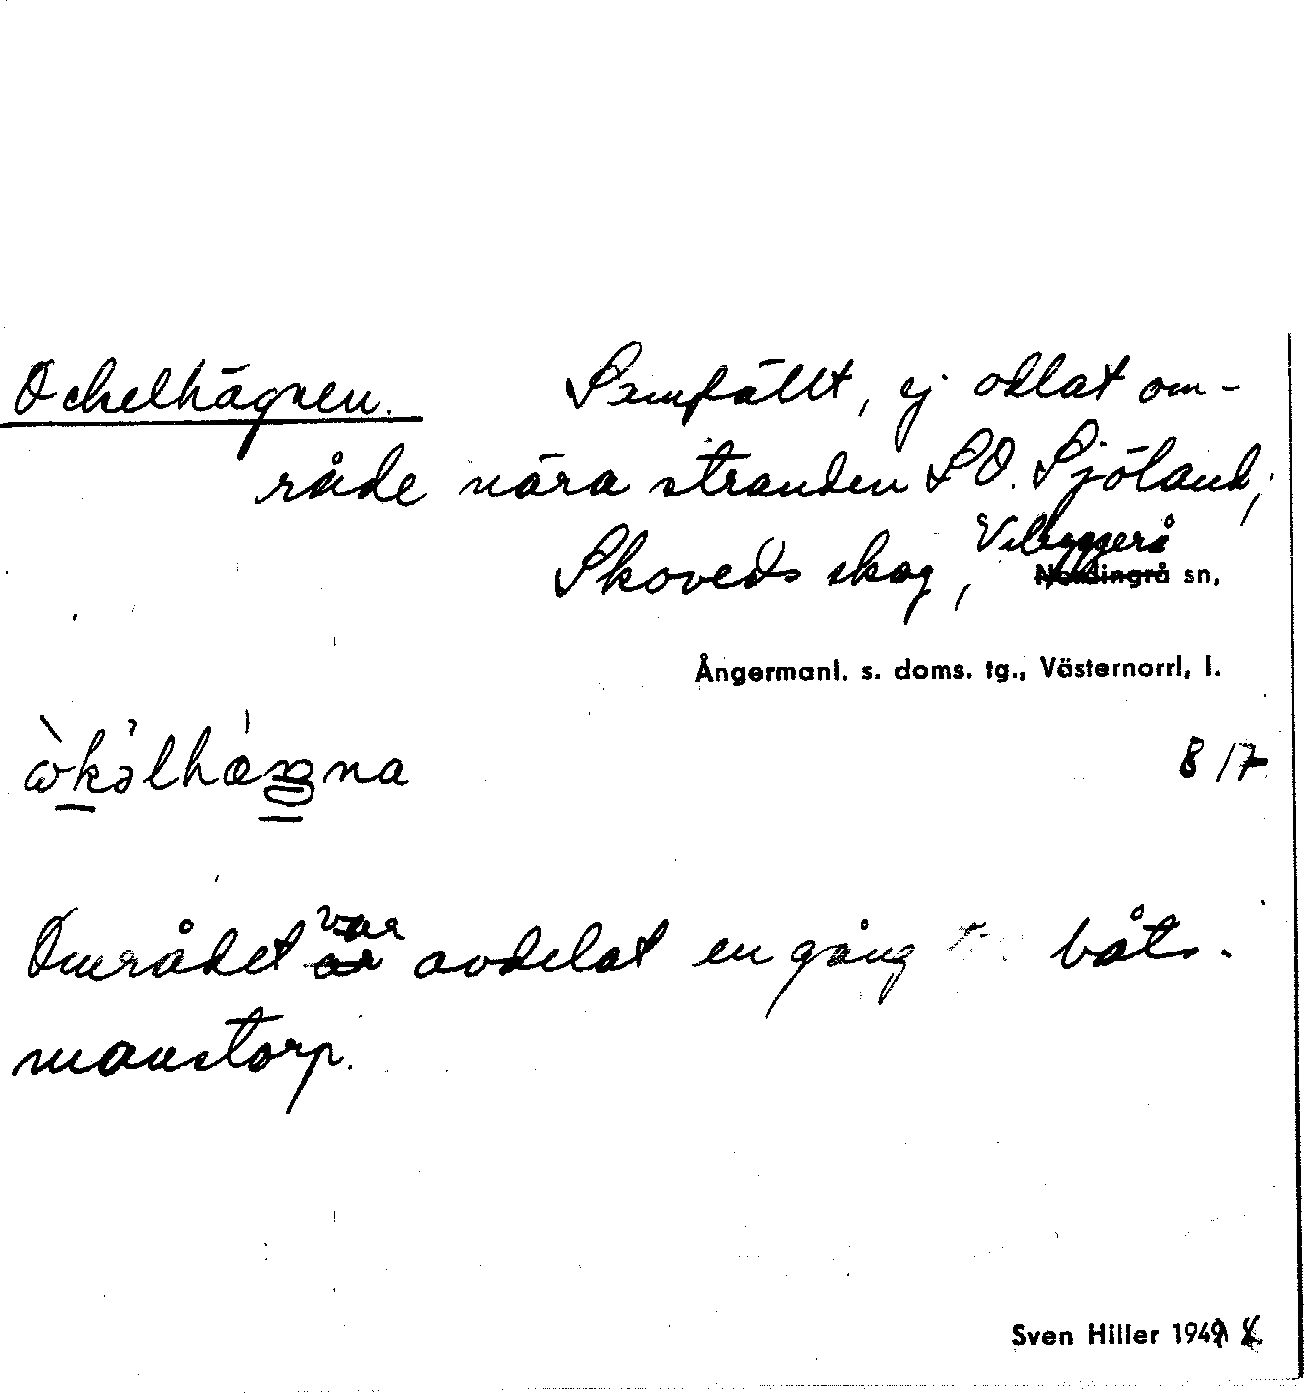 Ockelhägnen. Samfällt, ej odlat om-
råde nära stranden SO. Sjöland,
Skoveds skog, Vibyggerå
Nordingrå sn,
Ångermanl. s. doms. tg., Västernorrl. l.
8/7
Området var
är avdelat en gång båts-
manstorp.
Sven Hiller 194